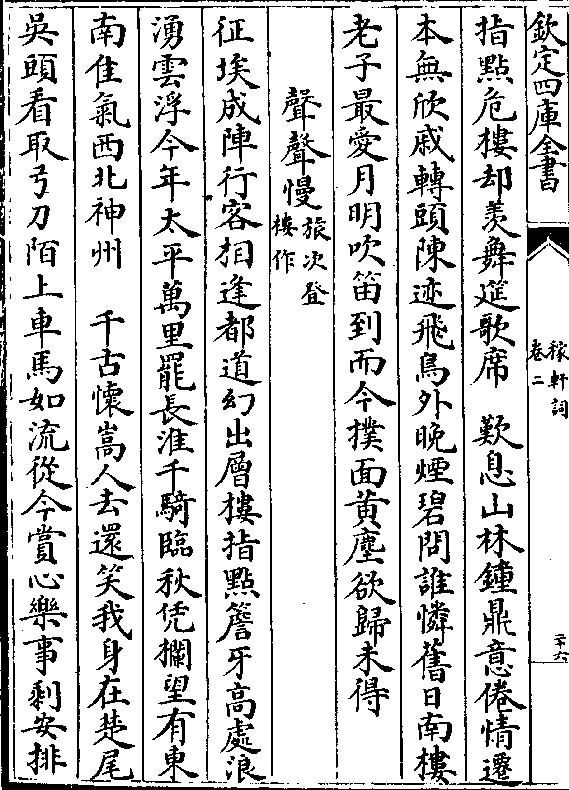 欽定四庫全書
稼軒詞
卷二
二十六
指點危樓却羡舞筵歌席　歎息山林鐘鼎意倦情遷
本無欣戚轉頭陳迹飛鳥外晚煙碧問誰憐舊日南樓
老子最愛月明吹笛到而今撲面黄塵欲歸未得
聲聲慢旅次登樓作
征埃成陣行客相逢都道幻出層樓指點簷牙高處浪
湧雲浮今年太平萬里罷長淮千騎臨秋凭欄望有東
南隹氣西北神州　千古懷嵩人去還笑我身在楚尾
吳頭看取弓刀陌上車馬如流從今賞心樂事剩安排